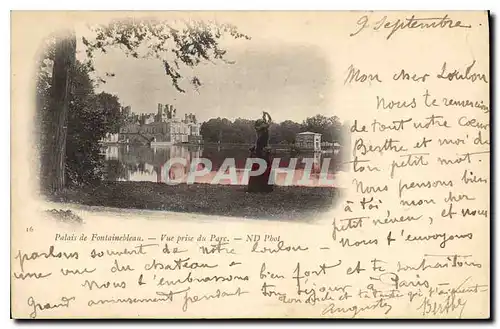 9 Septembre
Mon cher Loulon
Nous te remercions
de tout notre Cœur
Berthe et moi de
ton petit mot.
Nous pensons bien
à toi mon cher
petit neveu, et nous
t'envoyons
CPARAMA
16
Palais de Fontainebleau. — Vue prise du Parc. — ND Phot
parlons souvent de notre Loulon —
une vue du château —
Nous t'embrassons bien fort et te souhaitons
grand amusement pendant ton séjour à Paris,
ton oncle et ta tante qui t'aiment
Auguste Berthe